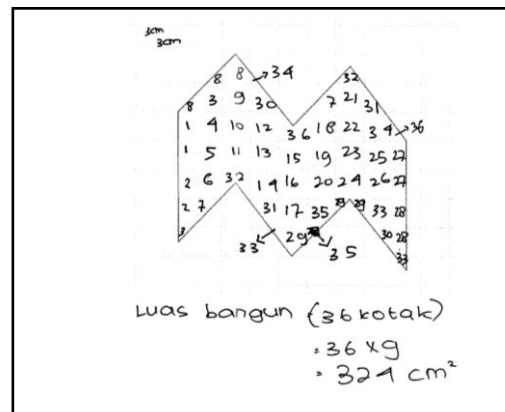 3cm
3cm
8 8 → 34 32
8 3 9 30 7 21 31
1 4 10 12 36 18 22 34 → 36
1 5 11 13 15 19 23 25 27
2 6 32 14 16 20 24 26 27
2 7 31 17 35 29 29 33 28
33 29 35 30 28
33
Luas bangun (36 kotak)
= 36 x 9
= 324 cm²